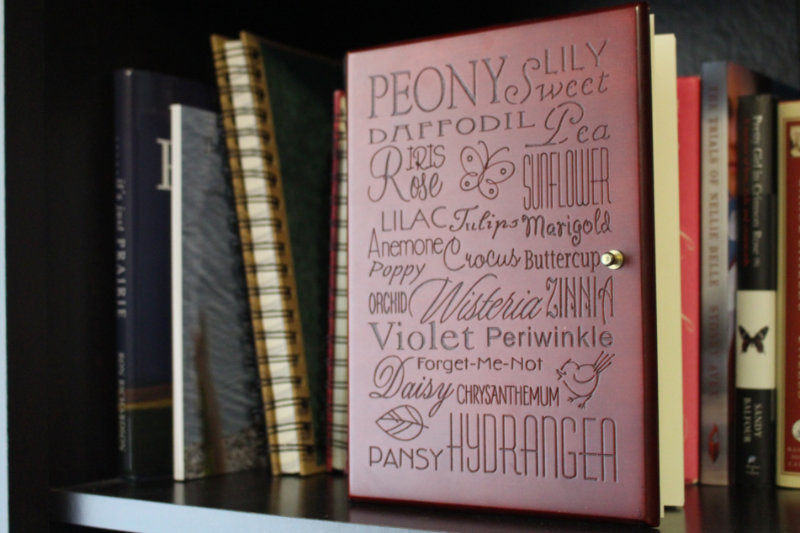 PEONY LILY
Sweet
DAFFODIL Pea
IRIS
Rose SUNFLOWER
LILAC Tulips Marigold
Anemone Crocus Buttercup
Poppy
ORCHID Wisteria ZINNIA
Violet Periwinkle
Forget-Me-Not
Daisy CHRYSANTHEMUM
PANSY HYDRANGEA
it's just PRAIRIE
TRIALS OF NELLIE BELLE
SANDY BALFOUR
Pretty Girl in Crimson Rose (8)